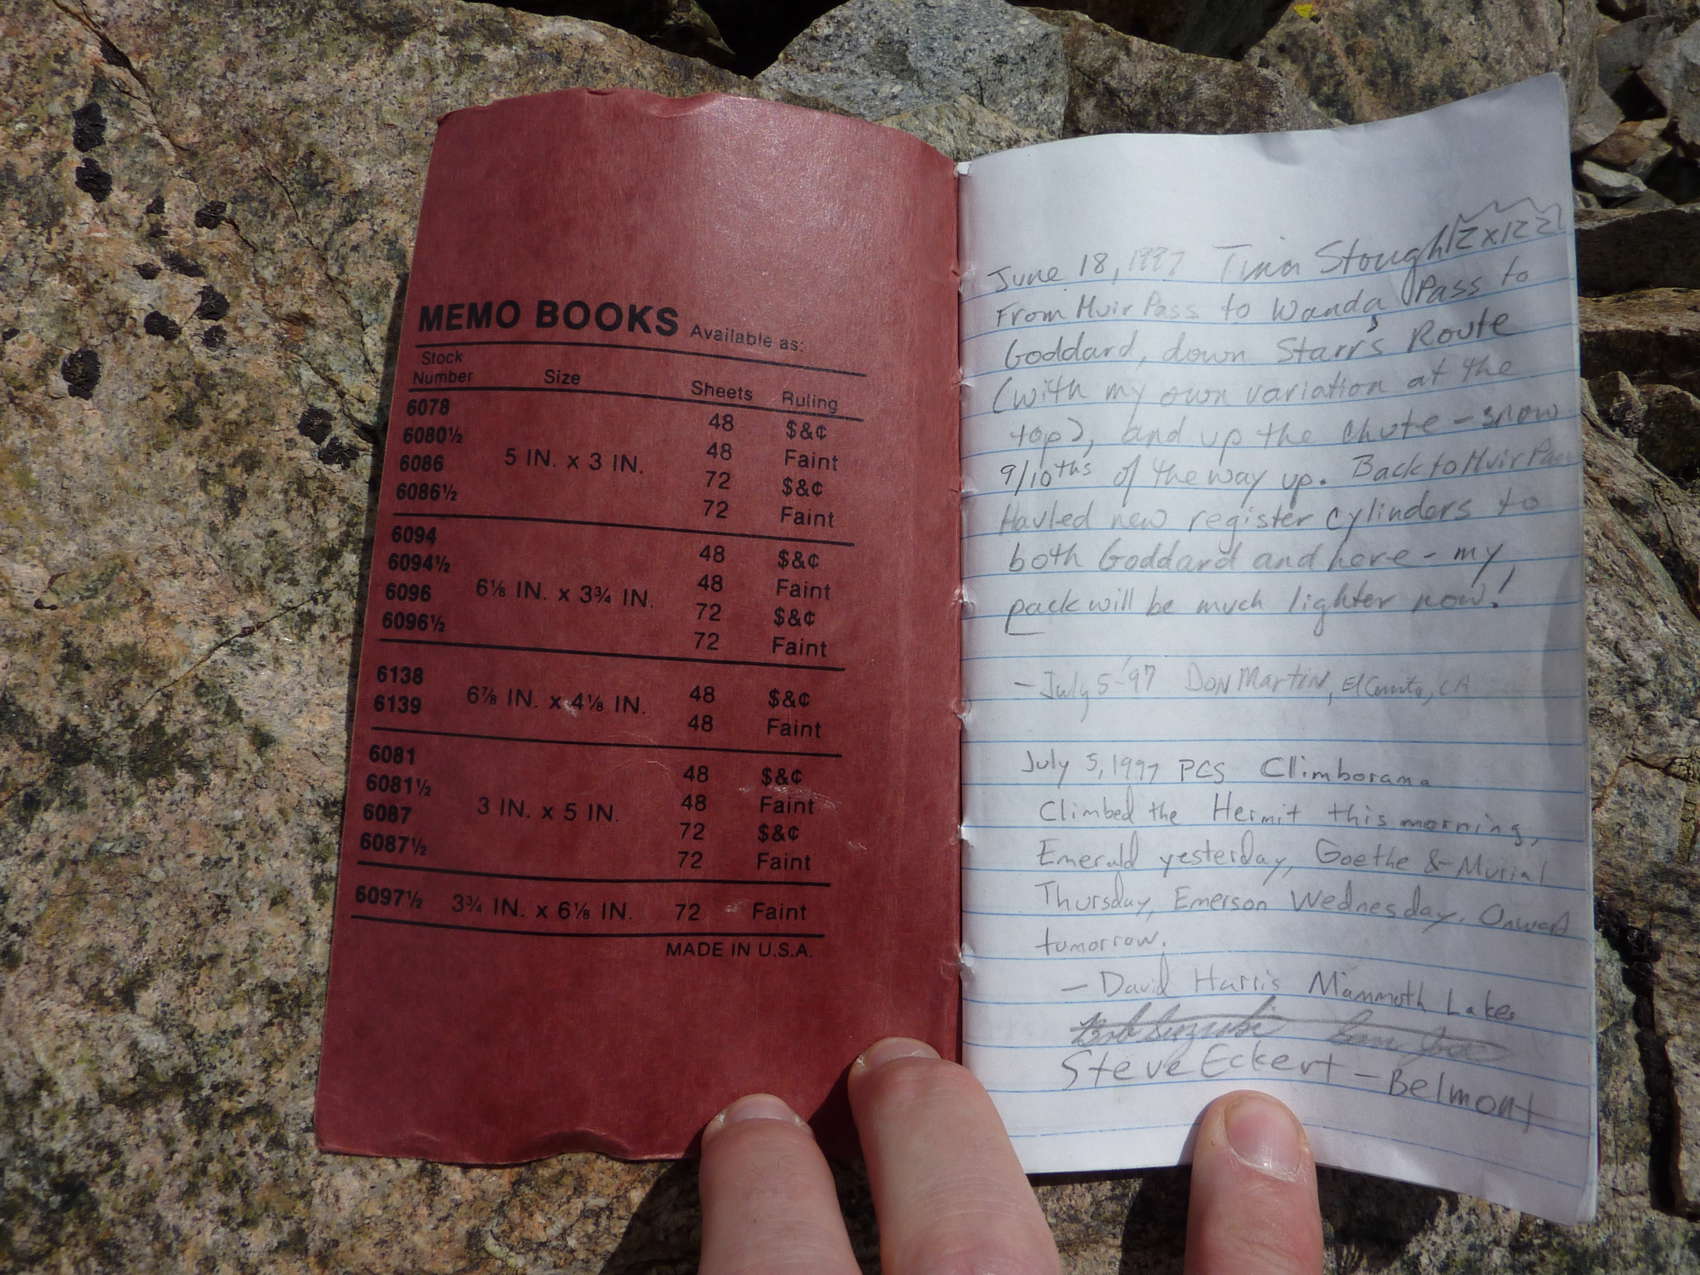 MEMO BOOKS Available as:
Stock Number Size Sheets Ruling
6078 48 $&¢
6080½ 5 IN. x 3 IN. 48 Faint
6086 72 $&¢
6086½ 72 Faint
6094 48 $&¢
6094½ 6⅛ IN. x 3¾ IN. 48 Faint
6096 72 $&¢
6096½ 72 Faint
6138 6⅞ IN. x 4⅛ IN. 48 $&¢
6139 48 Faint
6081 48 $&¢
6081½ 3 IN. x 5 IN. 48 Faint
6087 72 $&¢
6087½ 72 Faint
6097½ 3¾ IN. x 6⅛ IN. 72 Faint
MADE IN U.S.A.
June 18, 1997 Tina Stough
From Muir Pass to Wanda Pass to
Goddard, down Starr's Route
(with my own variation at the
top), and up the chute - snow
9/10ths of the way up. Back to Muir Pass
Hauled new register cylinders to
both Goddard and here - my
pack will be much lighter now!
- July 5 '97 Don Martin, El Cerrito, CA
July 5, 1997 PCS Climborama
Climbed the Hermit this morning,
Emerald yesterday, Goethe & Murial
Thursday, Emerson Wednesday. Onward
tomorrow.
- David Harris Mammoth Lakes
Bob Suzuki San Jose
Steve Eckert - Belmont